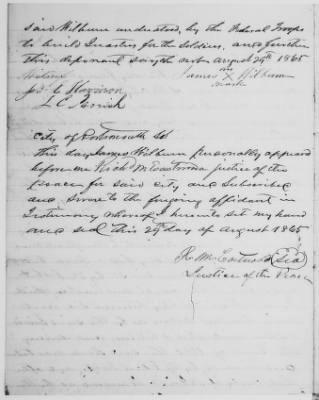 said Wilburn understood, by the Federal Troops
to build Quarters for the Soldiers, and further
this deponent sayeth not. August 29th 1865
Witness James his X Wilburn
mark
City of Portsmouth Sct
This day James Wilburn personally appeared
before me Richd M Eastwood a Justice of the
Peace for said City and Subscribed
and Swore to the forgoing affidavit in
Testimony whereof I hereunto set my hand
and seal this 29th day of August 1865
R. M. Eastwood Seal
Justice of the Peace